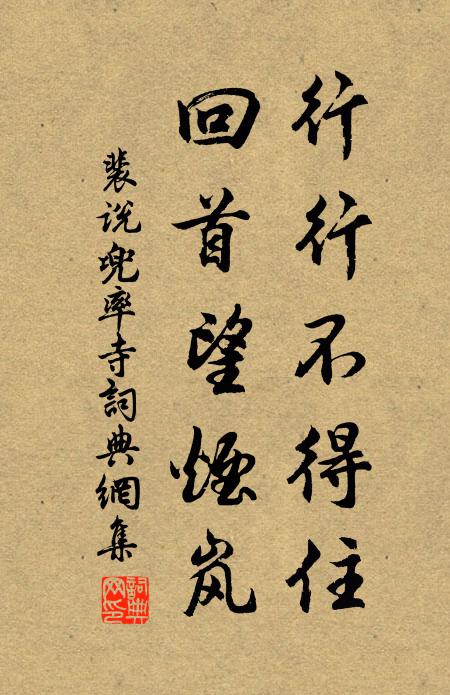 行行不得住
回首望煙岚
裴说兜率寺詞典網集
詞典网印